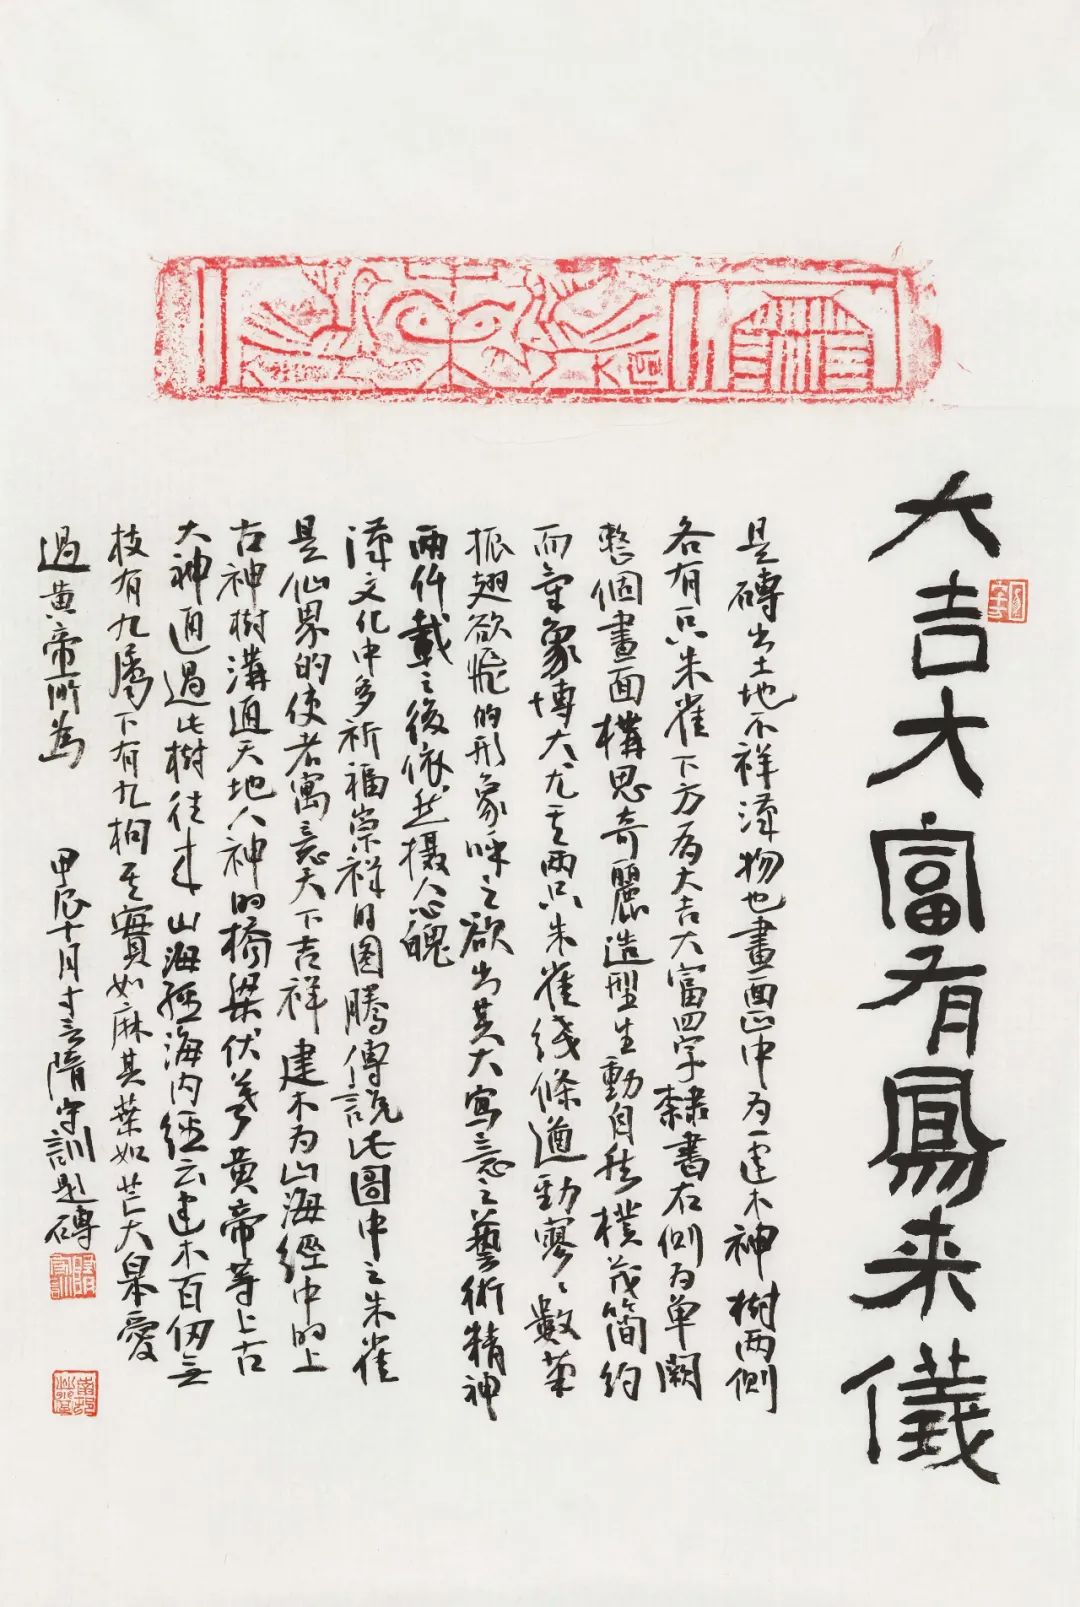 大吉大富有鳳来儀
是磚出土地不祥漢物也畫面正中为一建木神樹两側
各有一只朱雀下方为大吉大富四字隸書右側为单闕
整個畫面構思奇麗造型生動自然樸茂簡約
而氣象博大尤其兩只朱雀线條遒勁寥寥數筆
振翅欲飛的形象呼之欲出其大寫意之藝術精神
兩仟載之後依然摄人心魄
漢文化中多祈福崇祥的图騰傳說此圖中之朱雀
是仙界的使者寓意天下吉祥建木为山海經中的上
古神樹溝通天地人神的橋梁伏羲黄帝等上古
大神通過此樹往来山海經海内经云建木百仞無
枝有九欘下有九枸其實如麻其葉如芒大皋爰
過黄帝所為 甲辰十月寸言隋守訓題磚